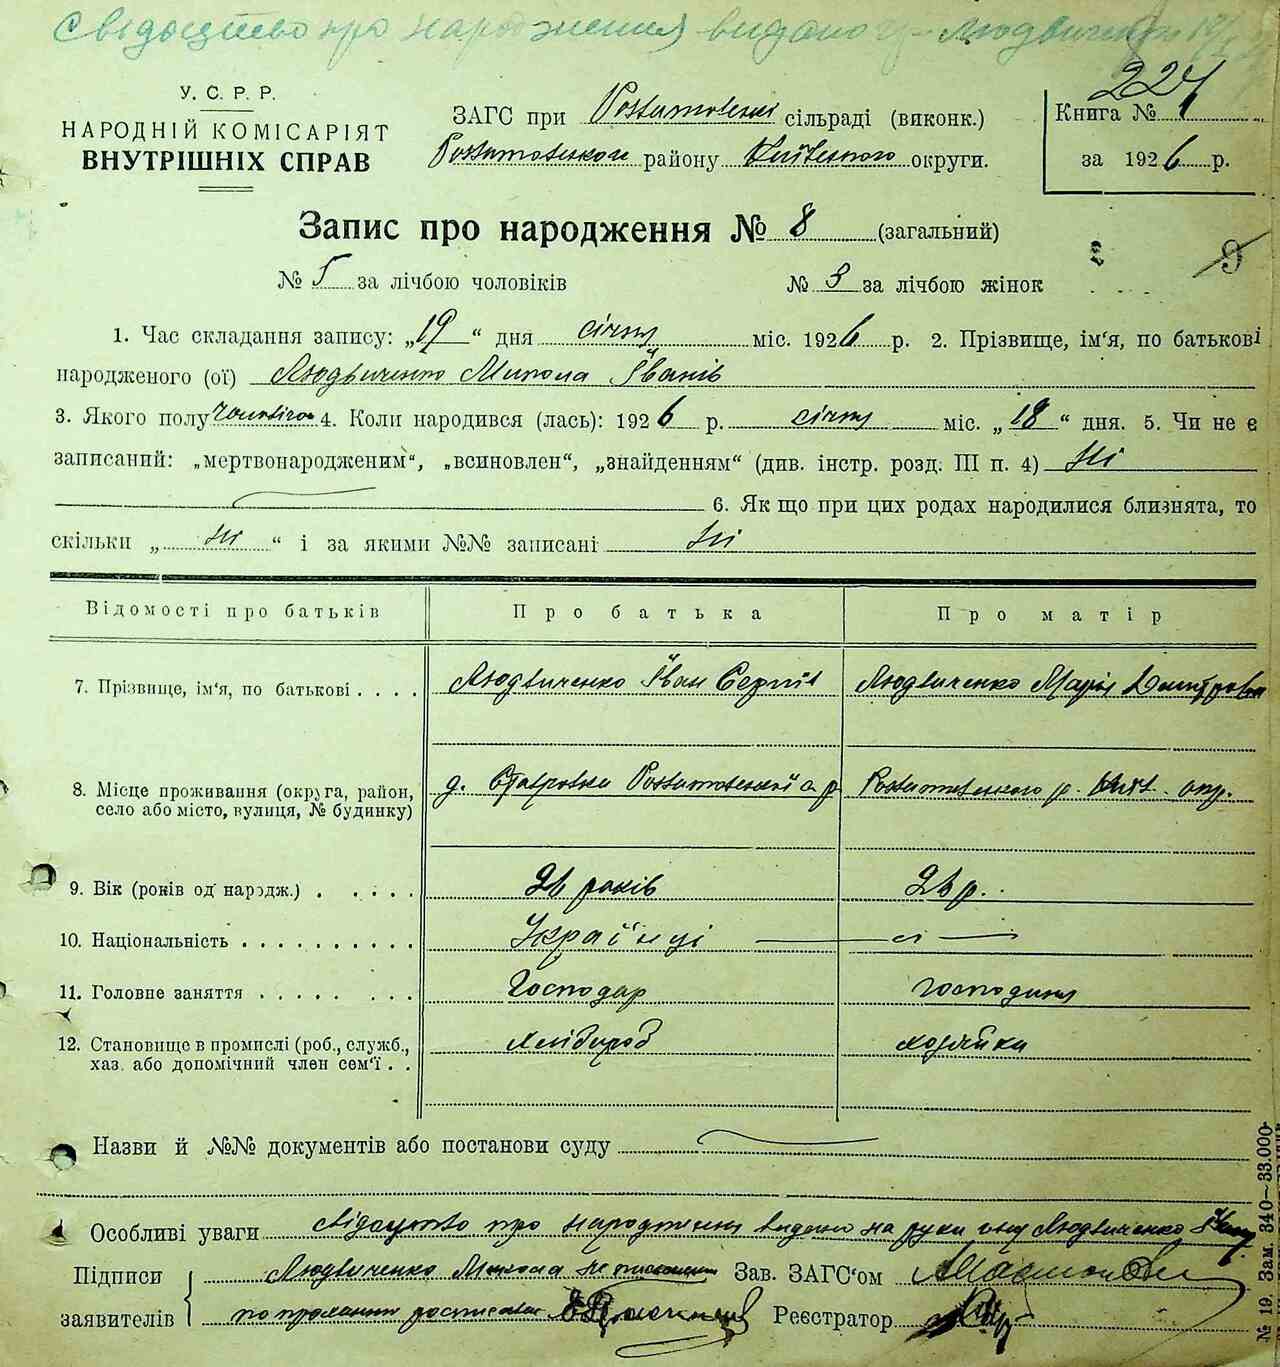 Свідоцтво про народження видано гр. Людвиченко 19/I
У. С. Р. Р.
НАРОДНІЙ КОМІСАРІЯТ
ВНУТРІШНІХ СПРАВ
ЗАГС при сільраді (виконк.)
району округи.
224
Книга № 1
за 1926 р.
Запис про народження № 8 (загальний)
№ 5 за лічбою чоловіків № 3 за лічбою жінок
9
1. Час складання запису: „19“ дня січня міс. 1926 р. 2. Прізвище, ім‘я, по батькові
народженого (ої) Людвиченко Микола Іванів
3. Якого полу 4. Коли народився (лась): 1926 р. січня міс. „18“ дня. 5. Чи не є
записаний: „мертвонародженим“, „всиновлен“, „знайденням“ (див. інстр. розд. III п. 4) ні
6. Як що при цих родах народилися близнята, то
скільки „ ні “ і за якими №№ записані ні
Відомості про батьків Про батька Про матір
7. Прізвище, ім‘я, по батькові . . . . Людвиченко Іван Сергіїв Людвиченко Марія Дмитровна
8. Місце проживання (округа, район,
село або місто, вулиця, № будинку)
д. р. окр.
9. Вік (років од народж.) . . . . . 26 років 26 р.
10. Національність . . . . . . . . . . Українці
11. Головне заняття . . . . . . . . Господар господиня
12. Становище в промислі (роб., служб.,
хаз. або допомічний член сем‘ї . .
хлібороб хозяйка
Назви й №№ документів або постанови суду
Особливі уваги свідоцтво про народження видано на руки Людвиченко
Підписи
заявителів
Людвиченко Микола Зав. ЗАГС‘ом
Реєстратор
№ 19. Зам. 340—33.000.